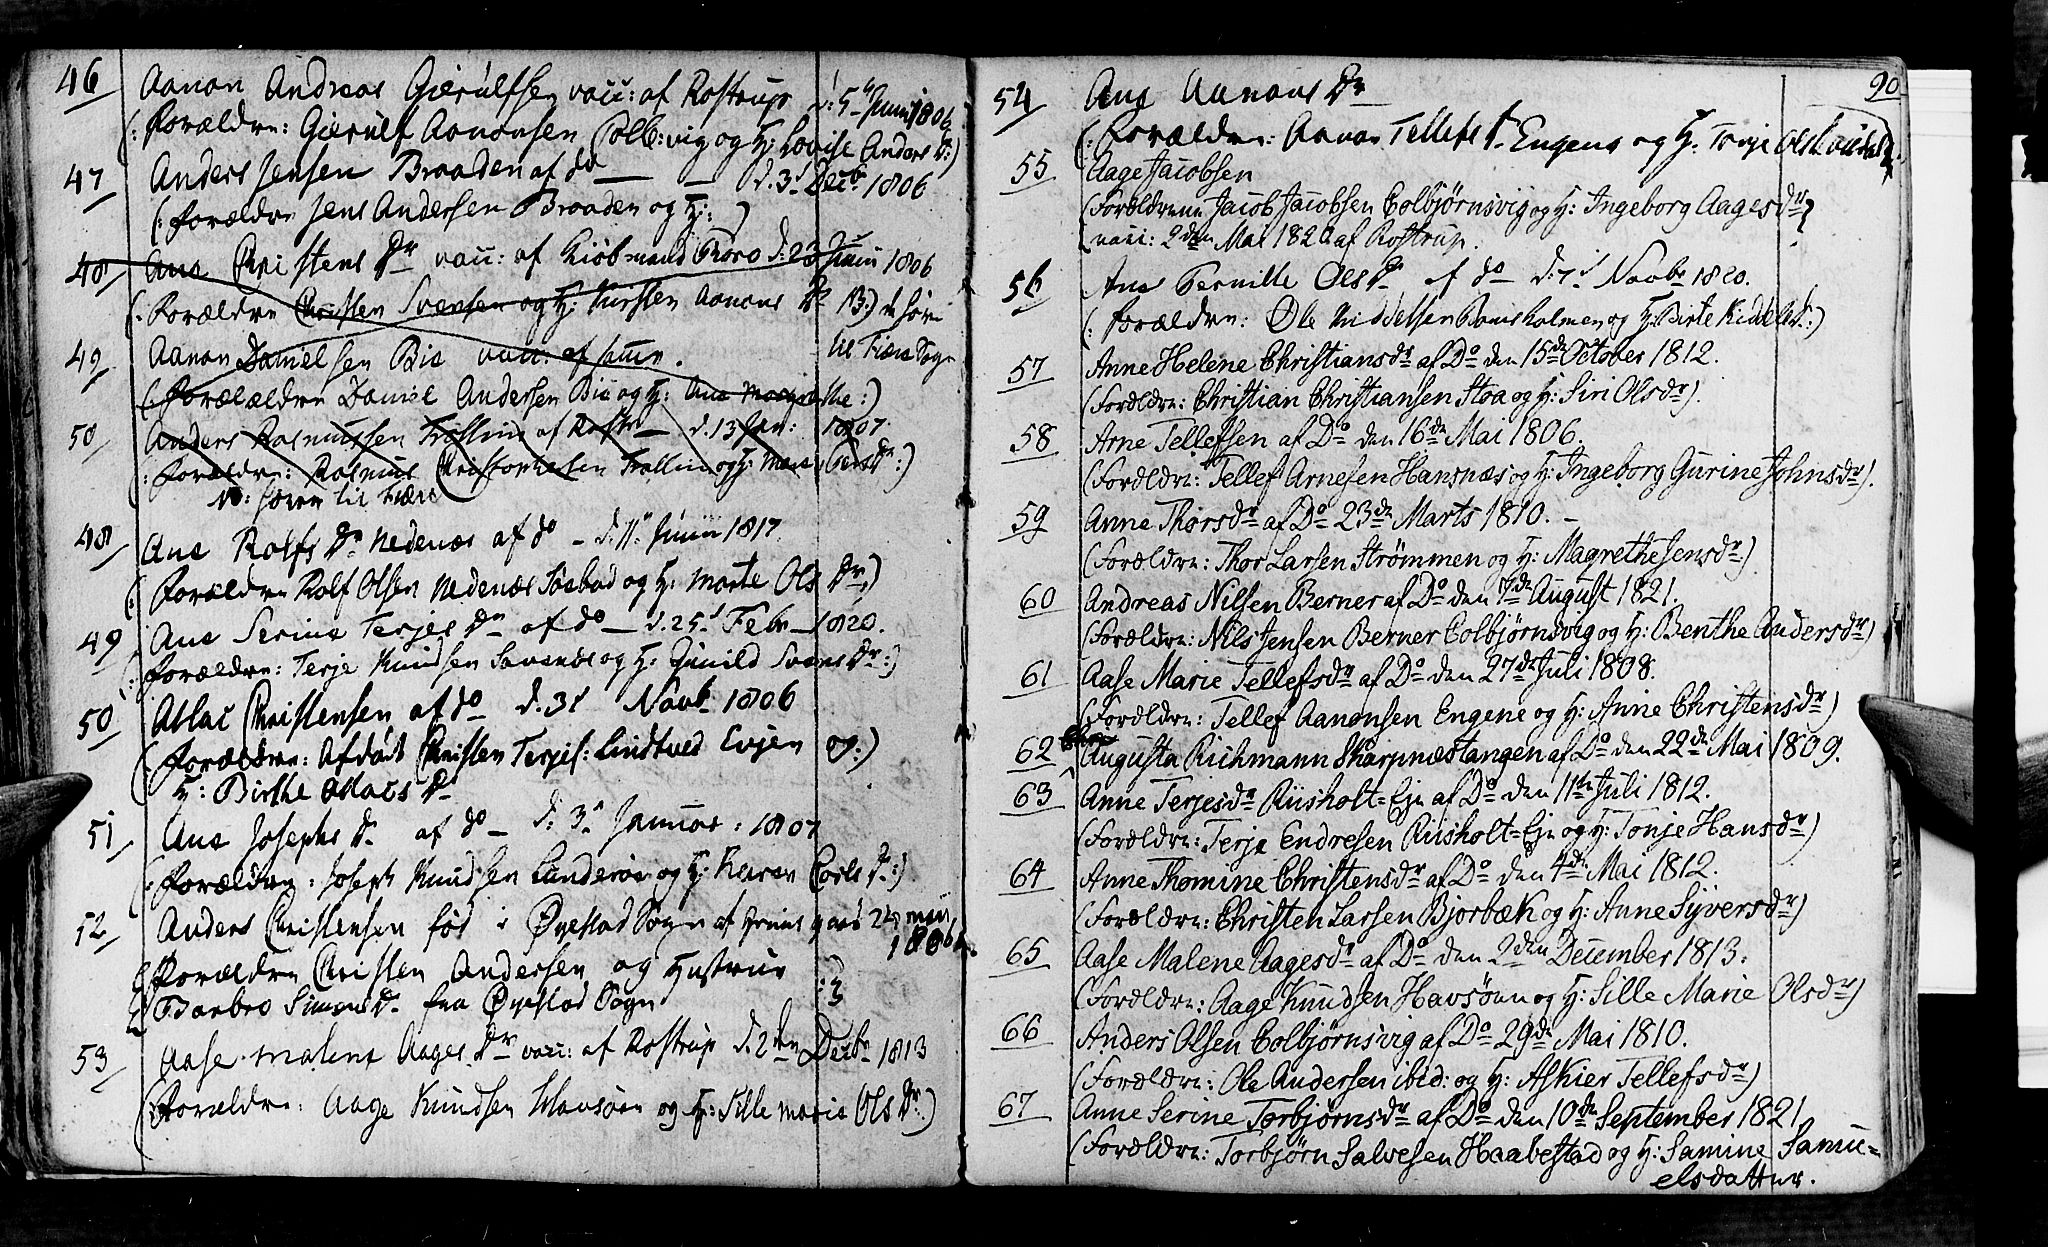 46 Aanon Andreas Gierulfsen vacc: af Rostrup d: 5 Junii 1806
(: Forældre: Gierulf Aanonsen Colb:vig og H: Lovise Anders Dr:)
47 Anders Jensen Braaden af do — — d. 3d Decbr 1806
(: Forældre Jens Andersen Braaden og H: )
48 Ane Christens Dr vacc: af Kiøbmand Thoro d: 23 Junii 1806
(: Forældre Christen Svensen og H: Kirsten Aanons Dr B:) de høre
49 Aanon Danielsen Bie vacc: af samme. til Fiære Sogn
(: Forælældre Daniel Andersen Bie og H: Ane Margrethe :)
50 Anders Rasmussen Trolline af Rostr — d. 13 Jan: 1807
(: Forældre: Rasmus Christophersen og H: :)
NB: høren til Fiære
48 Ane Rolfs Dr Nedenæs af do – d. 11 Junii 1817.
(: Forældre Rolf Olsen Nedenæs og H: Marte Ols Dr:)
49 Ane Serine Terjes Dr af do — d. 25d Febr — 1820.
(: Forældre: Terje Knudsen og H: Gunild Svens Dr:)
50 Atlac Christensen af do d. 3d Novbr 1806
(: Forældre: Afdøde Christen Terjes: Lindtved Eyjen og :)
H: Birthe Atlacs Dr
51 Ane Josephs Dr af do — d: 3d Januar: 1807
(: Forældre: Joseph Knudsen og H: Karen Carls Dr:)
52 Anders Christensen fød i Øyestad Sogn af 24 Maii 1806
Forældre Christen Andersen og Hustrue
Barbro Simons Dr fra Øyestad Sogn
53 Aase Malene Aages Dr vacc: af Rostrup d. 2den Decbr 1813
(: Forældre: Aage Knudsen Havsøen og H: Sille Marie Ols Dr:)
90
54 Ane Aanons Dr
(: Forældre: Aanon Tellefs Engene og H: Torje Ols
55 Aage Jacobsen
(Forældrene Jacob Jacobsen Colbjørnsvig og H: Ingeborg Aagesdr
vacc: 2den Mai 1820 af Rostrup.
56 Ane Pernille Ols Dr af do — d: 7d Novbr 1820.
(: Forældre: Ole Kiddelsen og H: Birte Kiddels Dr:)
57 Anne Helene Christiansdr af Do den 15de October 1812.
(Forældre: Christian Christiansen Stoa og H: Siri Olsdr).
58 Arne Tellefsen af Do den 16de Mai 1806.
(Forældre: Tellef Arnesen Hansnæs og H: Ingeborg Gurine Johnsdr).
59 Anne Thorsdr af Do 23de Marts 1810. –
(Forældre: Thor Larsen Strømmen og H: Magrethe Jensdr)
60 Andreas Nilsen Berner af Do den 7de August 1821.
(Forældre: Nils Jensen Berner Colbjørnsvig og H: Benthe Andersdr)
61 Aase Marie Tellefsdr af Do den 27de Juli 1808.
(Forældre: Tellef Aanonsen Engene og H: Anne Christensdr)
62 Augusta Richmann Skarpnæstangen af Do den 22de Mai 1809.
63 Anne Terjesdr Riisholt=Eje af Do den 11te Juli 1812.
(Forældre: Terje Endresen Riisholt=Eje og H: Tonje Hansdr)
64 Anne Thomine Christensdr af Do den 4de Mai 1812.
(Forældre: Christen Larsen Bjorbæk og H: Anne Syversdr)
65 Aase Malene Aagesdr af Do den 2den December 1813.
(Forældre: Aage Knudsen Havsøen og H: Sille Marie Olsdr)
66 Anders Olsen Colbjørnsvig af Do 29de Mai 1810.
(Forældre: Ole Andersen ibid: og H: Askier Tellefsdr)
67 Anne Serine Torbjørnsdr af Do den 10de September 1821
(Forældre: Torbjørn Salvesen Haabestad og H: Samine Samu=
elsdatter.